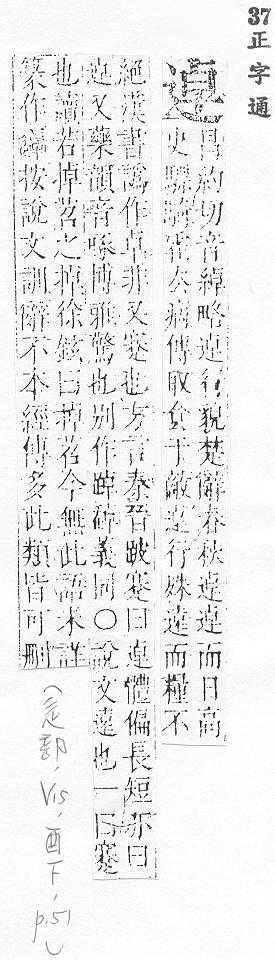 37正字通
逴
昌約切音綽略逴行貌楚辭春秋逴逴而日高
史驃騎霍去病傳取食于敵逴行殊遠而糧不
絕漢書譌作卓非又蹇也方言秦晉跛蹇曰逴體偏長短亦曰
逴又藥韻音啅博雅驚也別作踔䟾義同○說文遠也一曰蹇
也讀若掉苕之掉徐鉉曰掉苕今無此語未詳
篆作𨔶按說文訓辭不本經傳多此類皆可刪
(辵部, V15, 酉下, p.51)